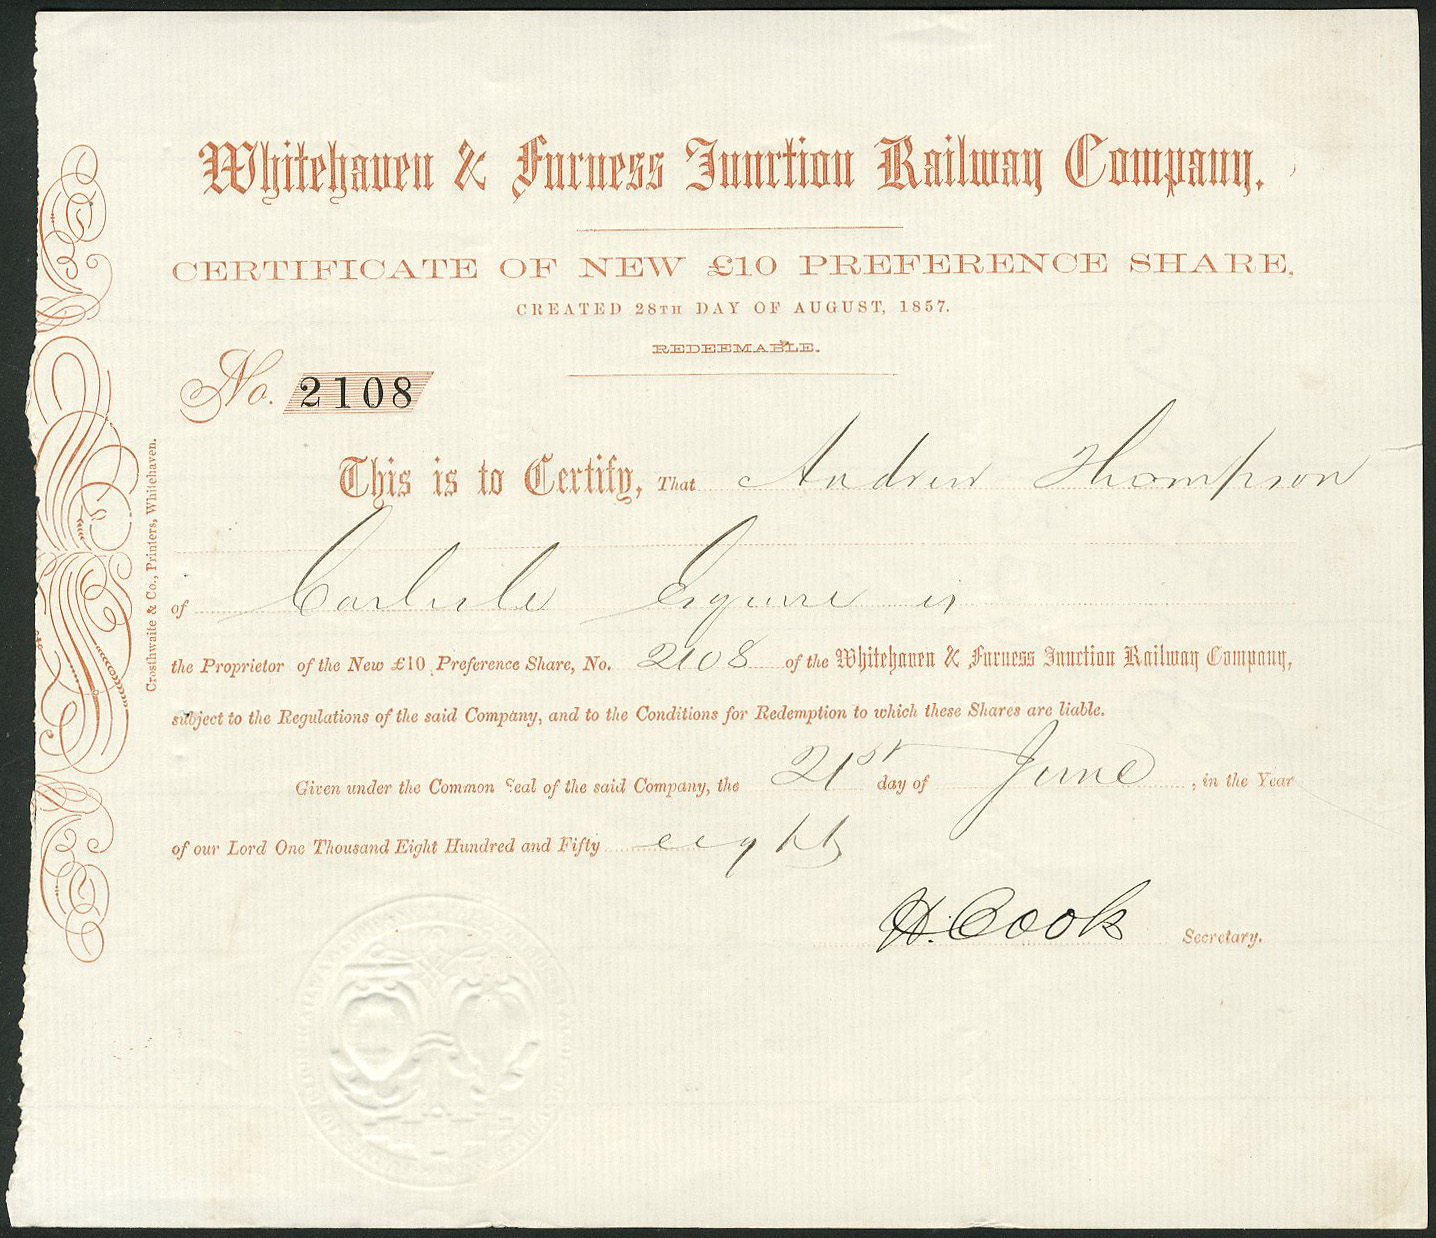 Whitehaven & Furness Junction Railway Company.
CERTIFICATE OF NEW £10 PREFERENCE SHARE,
CREATED 28TH DAY OF AUGUST, 1857.
REDEEMABLE.
No. 2108
This is to Certify, That Andrew Thompson
of Carlisle Esquire is
the Proprietor of the New £10 Preference Share, No. 2108 of the Whitehaven & Furness Junction Railway Company,
subject to the Regulations of the said Company, and to the Conditions for Redemption to which these Shares are liable.
Given under the Common Seal of the said Company, the 21st day of June, in the Year
of our Lord One Thousand Eight Hundred and Fifty eight
H. Cook Secretary.
Crosthwaite & Co., Printers, Whitehaven.